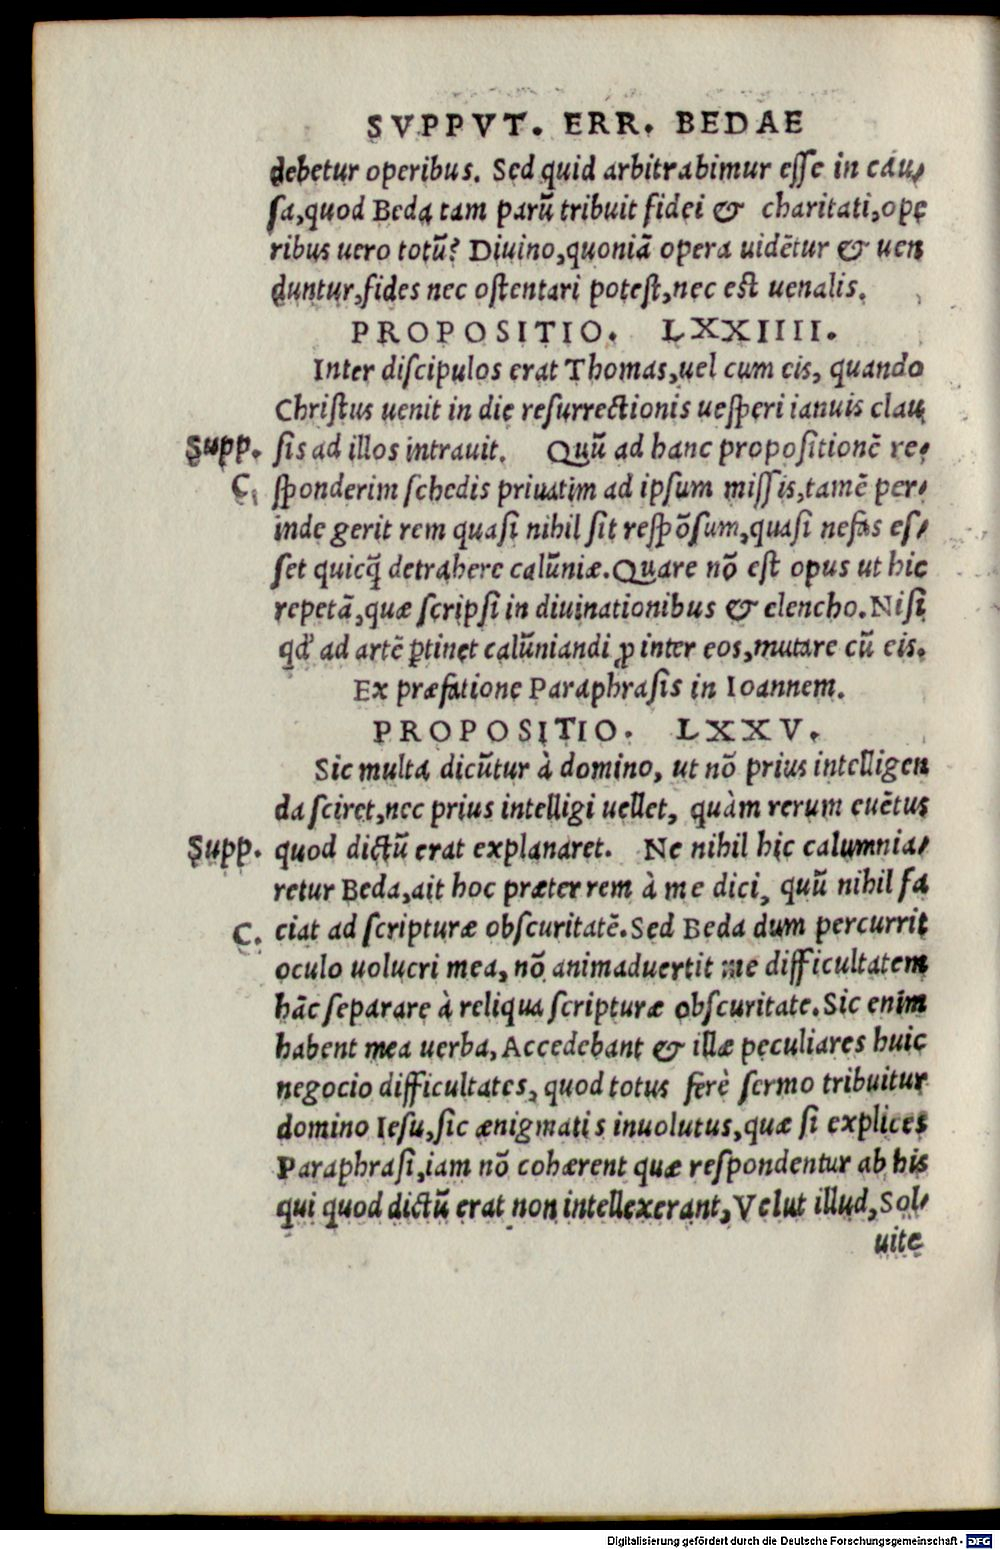 SVPPVT. ERR. BEDAE
debetur operibus. Sed quid arbitrabimur eſſe in cau-
ſa, quod Beda tam parū tribuit fidei & charitati, ope
ribus uero totū? Diuino, quoniā opera uidētur & uen
duntur, fides nec oſtentari poteſt, nec eſt uenalis.
PROPOSITIO. LXXIIII.
Inter diſcipulos erat Thomas, uel cum eis, quando
Chriſtus uenit in die reſurrectionis ueſperi ianuis clau
Supp. ſis ad illos intrauit. Quū ad hanc propoſitionē re-
C. ſponderim ſchedis priuatim ad ipſum miſſis, tamē per-
inde gerit rem quaſi nihil ſit reſpōſum, quaſi nefas eſ-
ſet quicq̄ detrahere calūniæ. Quare nō eſt opus ut hic
repetā, quæ ſcripſi in diuinationibus & elencho. Niſi
qđ ad artē ꝑtinet calūniandi ꝓ inter eos, mutare cū eis.
Ex præfatione Paraphraſis in Ioannem.
PROPOSITIO. LXXV.
Sic multa dicūtur à domino, ut nō prius intelligen
da ſciret, nec prius intelligi uellet, quàm rerum euētus
Supp. quod dictū erat explanaret. Ne nihil hic calumnia-
retur Beda, ait hoc præter rem à me dici, quū nihil fa
C. ciat ad ſcripturæ obſcuritatē. Sed Beda dum percurrit
oculo uolucri mea, nō animaduertit me difficultatem
hāc ſeparare à reliqua ſcripturæ obſcuritate. Sic enim
habent mea uerba, Accedebant & illæ peculiares huic
negocio difficultates, quod totus ferè ſermo tribuitur
domino Ieſu, ſic ænigmatis inuolutus, quæ ſi explices
Paraphraſi, iam nō cohærent quæ reſpondentur ab his
qui quod dictū erat non intellexerant, Velut illud, Sol-
uite
Digitalisierung gefördert durch die Deutsche Forschungsgemeinschaft - DFG